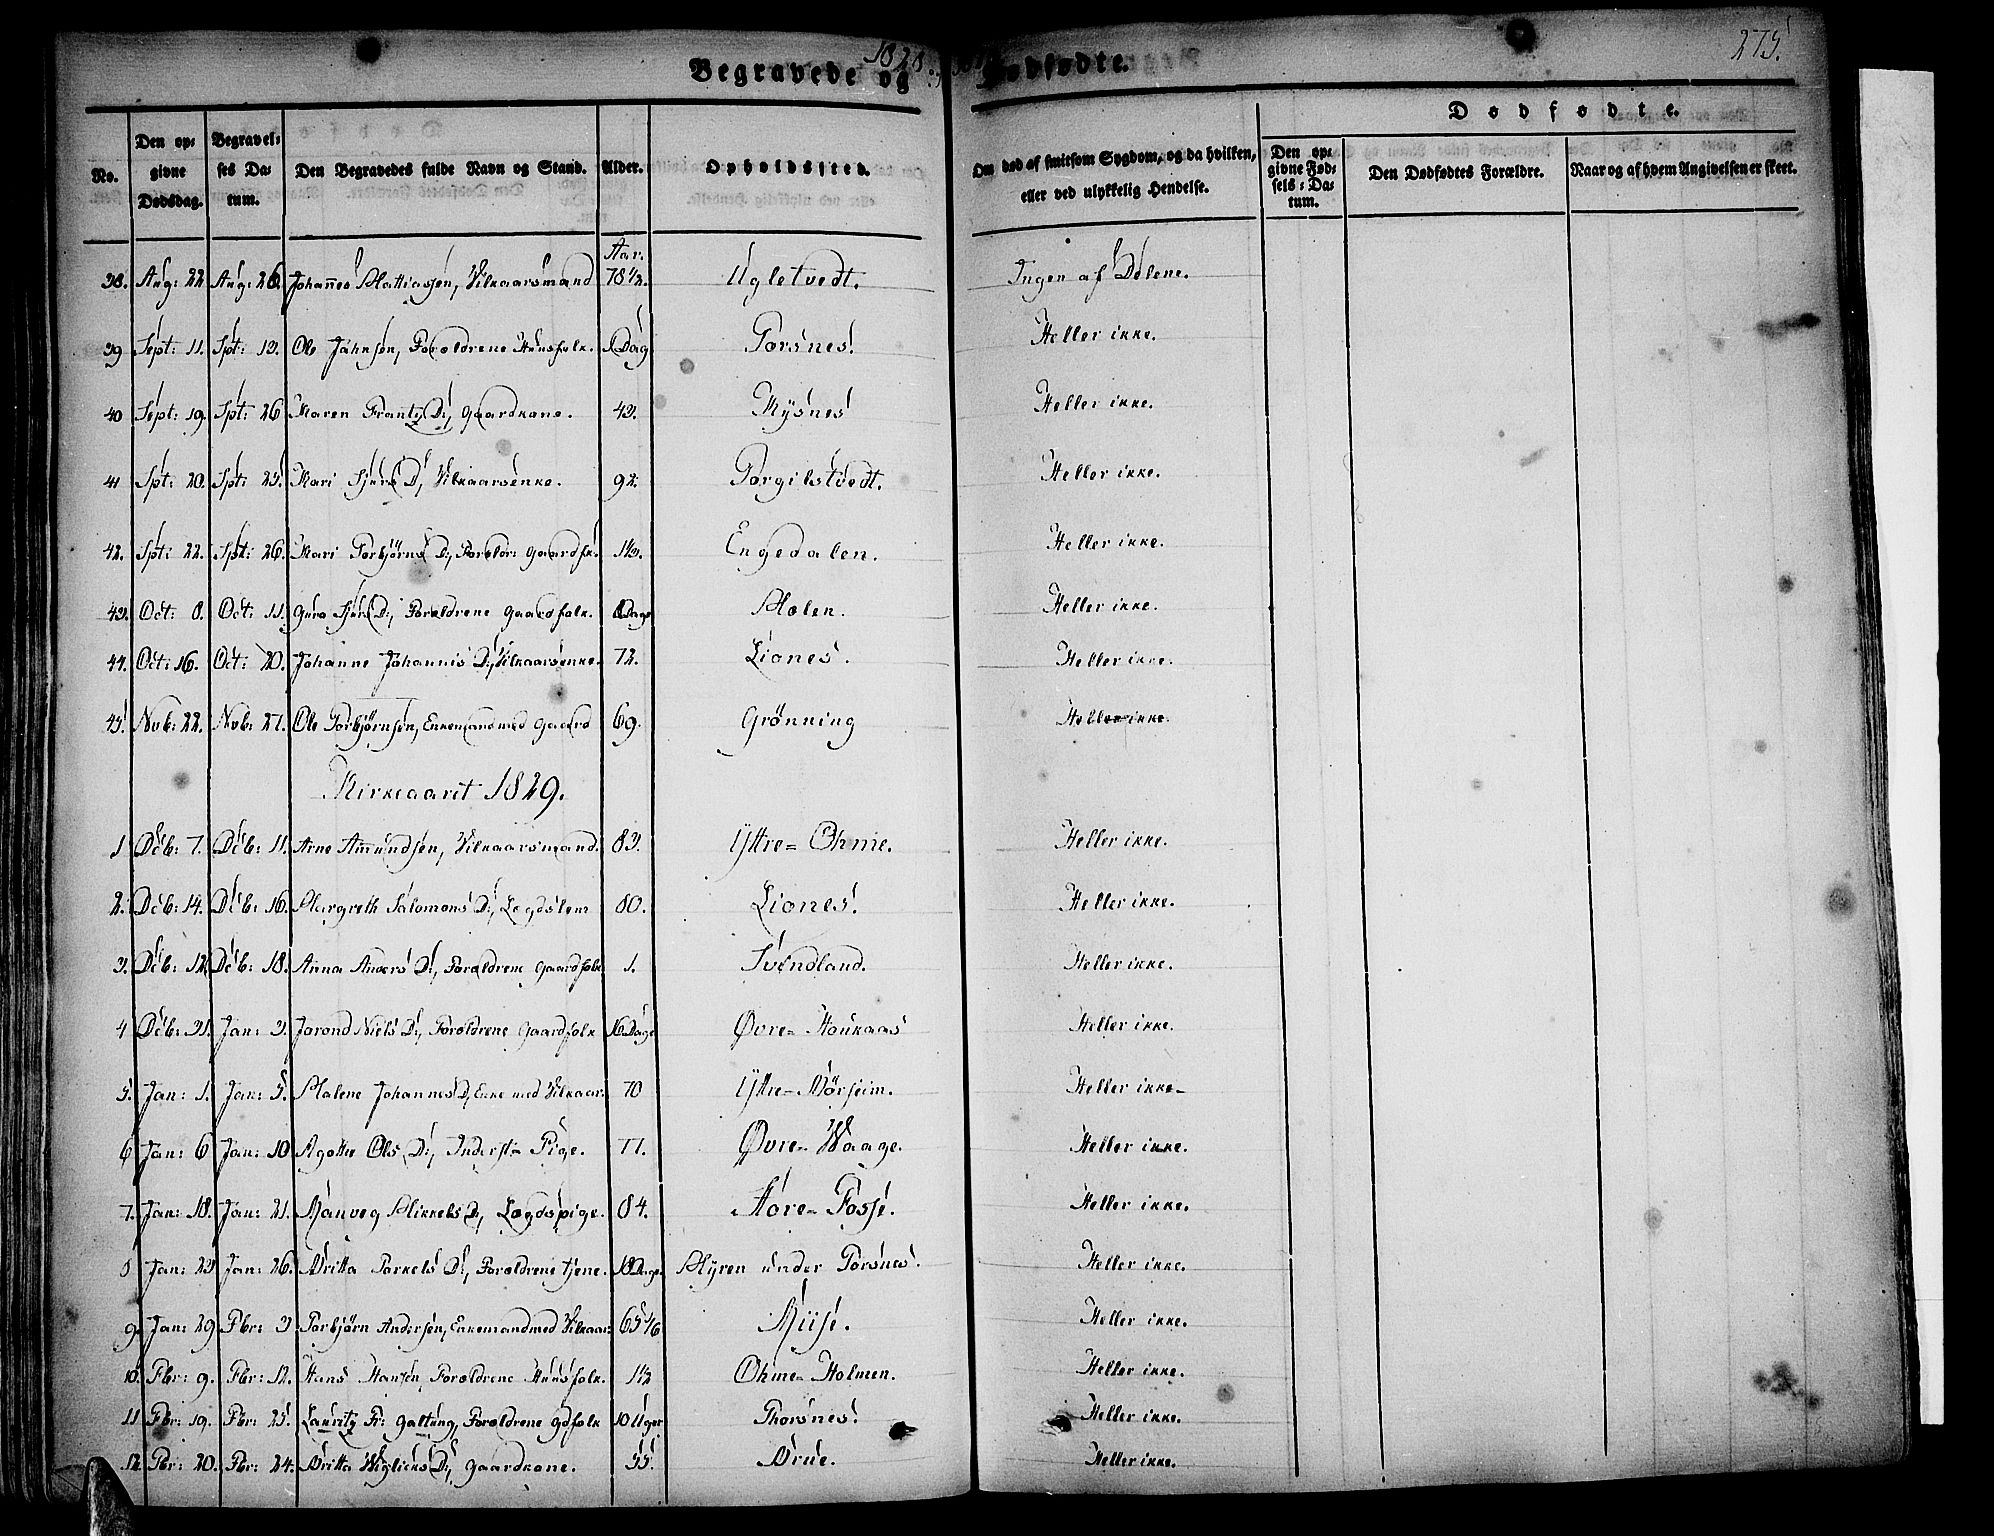 1828.
275.
Begravede og Dødfødte.
No.
Den opgivne Dødsdag.
Begravelses Datum.
Den Begravedes fulde Navn og Stand.
Alder.
Opholdssted.
Om død af smitsom Sygdom, og da hvilken, eller ved ulykkelig Hendelse.
Dødfødte.
Den opgivne Fødsels-Datum.
Den Dødfødtes Forældre.
Naar og af hvem Angivelsen er skeet.
Aar.
38. Aug: 22 Aug: 26. Johannes Mattiassen, Vilkaarsmand 78 1/2. Ugletvedt. Ingen af Delene.
39 Sept: 11. Spt: 13. Ole Johnsen, Forældrene Huusfolk. 1 Dag Torsnes. Heller ikke.
40 Sept: 19. Spt: 26 Maren Frantz D:, Gaardkone. 43. Mysnes Heller ikke.
41 Spt: 20. Spt: 25. Mari Sjurs D:, Vilkaarsenke. 92. Torgilstvedt. Heller ikke.
42. Spt: 22. Spt: 26. Mari Torbjørns D:, Foreldr: Gaardfk. 1 1/2. Engedalen. Heller ikke.
43. Oct: 8. Oct: 11. Guro Sjurs D:, Forældrene Gaardfolk. Dage Mølen. Heller ikke.
44. Oct: 16. Oct: 20. Johanne Johannis D:, Vilkaarsenke. 72. Liones. Heller ikke.
45. Nvb: 22. Nvb: 27. Ole Torbjørnsen, Enkemand med Gaard 69. Grønning Heller ikke.
Kirkeaaret 1829.
1 Dcb: 7. Dcb: 11. Arne Amundsen, Vilkaarsmand. 83. Yttre- Ohme. Heller ikke.
2. Dcb: 14. Dcb: 16. Margreth Salomons D:, Legdslem 80. Liones. Heller ikke.
3. Dcb: 12. Dcb: 18. Anna Anders D:, Forældrene Gaardfolk 1. Svendland. Heller ikke.
4 Dcb: 31. Jan: 3. Jorond Niels D:, Forældrene Gaardfolk 16 Dage Øvre- Houkaas Heller ikke.
5. Jan: 1. Jan: 5. Malene Johannes D:, Enke med Vilkaar. 70 Yttre- Børseim. Heller ikke-
6 Jan: 6 Jan: 10 Agotte Ols D:, Inderst- Pige. 77. Øvre- Waage. Heller ikke.
7. Jan: 18. Jan: 21. Manveg Mikkels D:, Lægdspige. 84. Støre- Fosse. Heller ikke.
8 Jan: 23 Jan: 26. Britta Torkels D:, Forældrene tjene. 18 Dage. Myren under Torsnes. Heller ikke.
9. Jan: 29 Fbr: 3 Torbjørn Andersen, Enkemand med Vilkaar. 65 1/6 Heller ikke.
10. Fbr: 9. Fbr: 12. Hans Hansen, Forældrene Huusfolk. 1 1/2 Ohme- Holmen. Heller ikke.
11 Fbr: 19. Fbr: 25. Lauritz Fr: Galtung, Forældrene Gdfolk 10 Uger Thorsnes. Heller ikke.
12. Fbr: 20. Fbr: 24. Britta Wiglicks D:, Gaardkone. 55. Brue. Heller ikke.